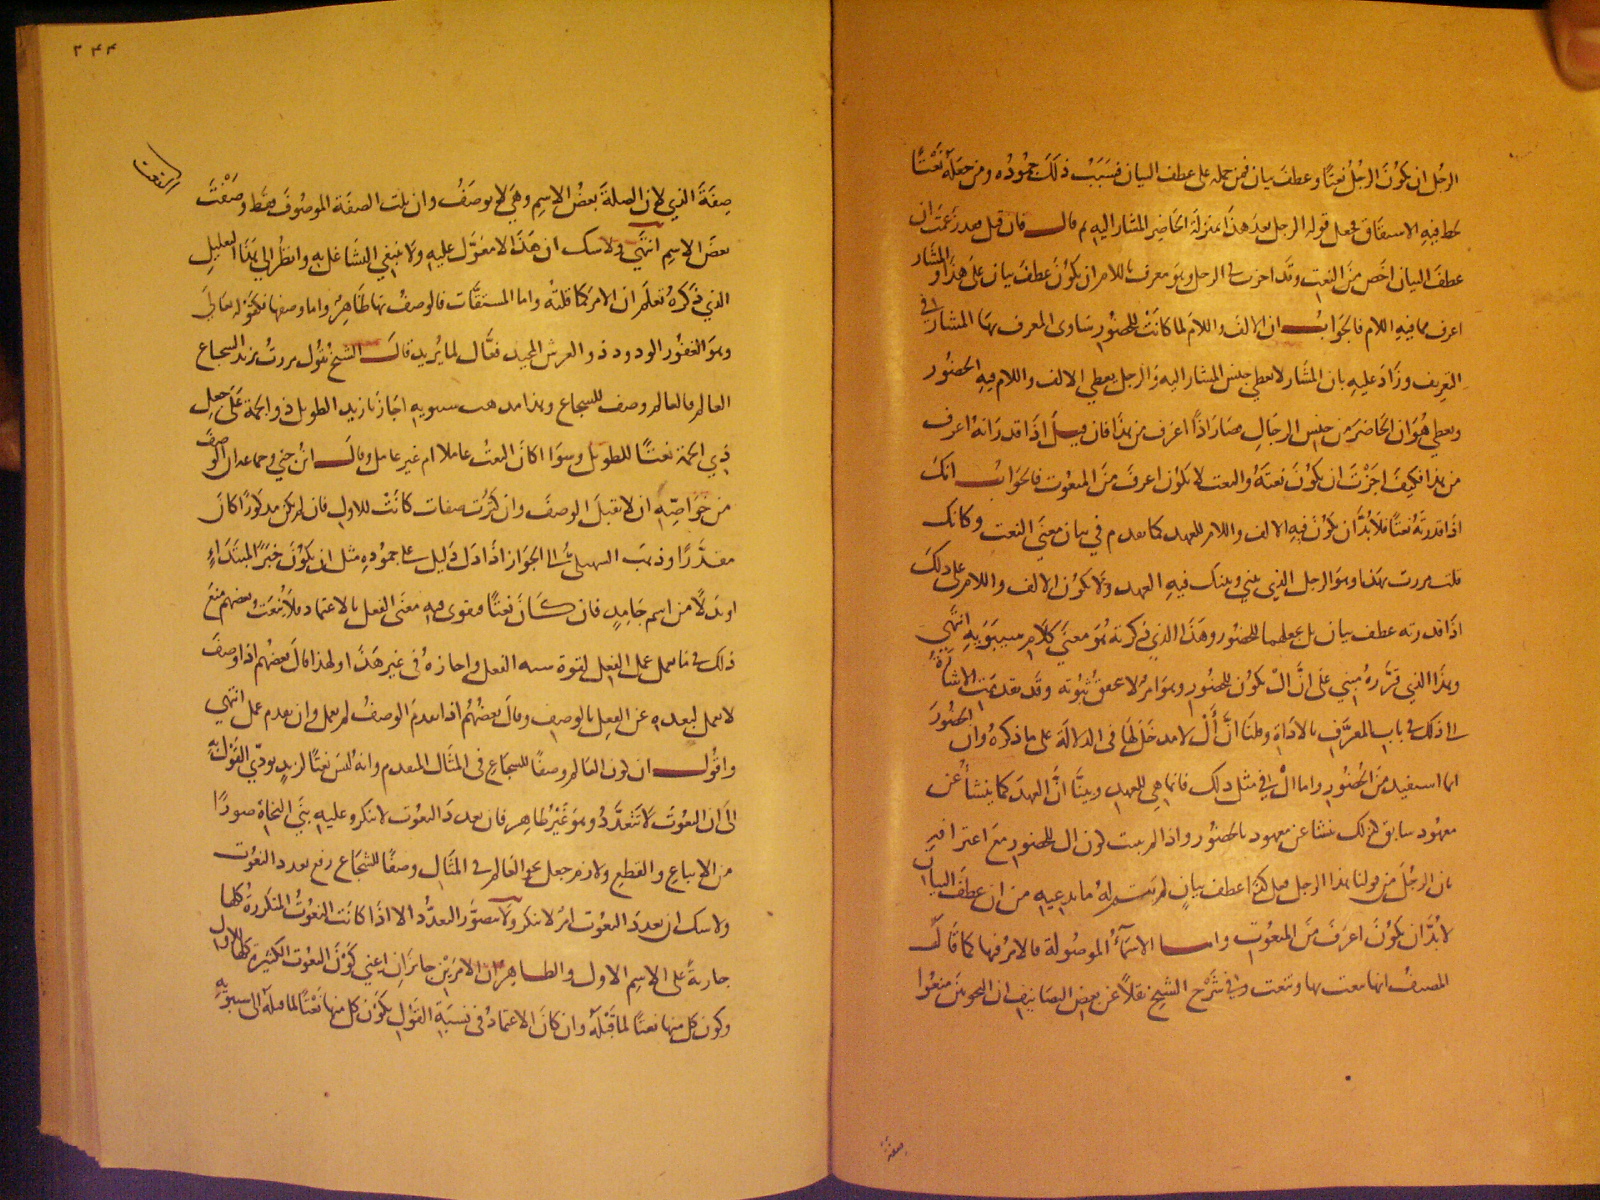 الرجل ان يكون الرجل نعتا وعطف بيان فمن حمله على عطف البيان فسبب ذلك جموده ومن جعله نعتا
لحظ فيه الاشتقاق فجعل قوله الرجل بعد هذا بمنزلة الحاضر المشار اليه ثم قال فان قيل فقد زعمت ان
عطف البيان اخص من النعت وقد اجزت في الرجل وهو معرف باللام ان يكون عطف بيان على هذا والمشار
اعرف مما فيه اللام فالجواب ان الالف واللام لما كانت للحضور ساوى المعرف بها المشار في
التعريف وزاد عليه بان المشار لا يعطي جنس المشار اليه والرجل يعطي الالف واللام فيه الحضور
ويعطي هو ان الحاضر من جنس الرجال فصار اذا اعرف من هذا فان قيل اذا قدر انه اعرف
من هذا فكيف اجزت ان يكون نعته والنعت لا يكون اعرف من المنعوت فالجواب انك
اذا قدرته نعتا فلا بد ان يكون فيه الالف واللام للعهد كما تقدم في بيان معنى النعت وكانك
قلت مررت بهذا وهو الرجل الذي بيني وبينك فيه العهد ولا يكون الالف واللام على ذلك
اذا قدرته عطف بيان بل تجعلهما للحضور وهذا الذي ذكرته هو معنى كلام سيبويه انتهى
وهذا الذي قرره مبني على ان ال يكون للحضور وهو امر لا يحقق ثبوته وقد تقدمت الاشارة
الى ذلك في باب المعرف بالاداة وقلنا ان أل لا مدخل لها في الدلالة على ما ذكره وان الحضور
انما استفيد من الحضور واما ال في مثل ذلك فانما هي للعهد وبينا ان العهد كما ينشأ عن
معهود سابق كذلك ينشا عن معهود بالحضور واذا لم يثبت كون ال للحضور مع اعترافه
بان الرجل من قولنا بهذا الرجل قبل كذا عطف بيان لم يتم له ما يدعيه من ان عطف البيان
لا بد ان يكون اعرف من المنعوت واما الاسماء الموصولة فالامر فيها كما قال
المصنف انها تنعت بها وتنعت وفي شرح الشيخ نقلا عن بعض التصانيف ان النحويين منعوا
صفة
٢٤٤
النعت
صفة الذي لان الصلة بعض الاسم وهي لا يوصف وان تلت الصفة الموصوف فقط وصفت
بعض الاسم انتهى ولا شك ان هذا لا معول عليه ولا ينبغي التشاغل به وانظر الى هذا التعليل
الذي ذكره تعلم ان الامر كما قلته واما المشتقات فالوصف بها ظاهر واما وصفها فكقوله تعالى
وهو الغفور الودود ذو العرش المجيد فعال لما يريد قال الشيخ تقول مررت بزيد الشجاع
العالم فالعالم وصف للشجاع وهذا مذهب سيبويه اجاز يا زيد الطويل ذو الجمة على جعل
ذي الجمة نعتا للطويل وسوا اكان النعت عاملا ام غير عامل وقال ابن جني وجماعة ان الوصف
من خواصه ان لا تقبل الوصف وان كثرت صفات كانت للاول فان لم يكن مذكورا كان
مقدرا وذهب السهيلي الى الجواز اذا دل دليل على جموده مثل ان يكون خبرا لمبتداء
او بدلا من اسم جامد فان كان نعتا فقوي فيه معنى الفعل بالاعتماد فلا ينعت وبعضهم منع
ذلك في ما يعمل عمل الفعل لقوة شبه الفعل واجازه في غير هذا ولهذا قال بعضهم اذا وصف
لا يعمل لبعده عن الفعل بالوصف وقال بعضهم اذا تقدم الوصف لم يعمل وان تقدم عمل انتهى
واقول ان كون العالم وصفا للشجاع في المثال المتقدم وانه ليس نعتا لزيد يؤدي القول به
الى ان النعوت لا تتعدد وهو غير ظاهر فان تعدد النعوت لا ينكره عليه بنى النحاة صورا
من الاتباع والقطع ولازم جعل نحو العالم في المثال وصفا للشجاع رفع تعدد النعوت
ولا شك ان تعدد النعوت امر لا ينكر ولا يتصور التعدد الا اذا كانت النعوت المتكررة كلها
جارية على الاسم الاول والظاهر ان الامرين جايزان اعني كون النعوت الكثيرة كلها للاول
وكون كل منها نعتا لما قبله وان كان الاعتماد في نسبة القول بكون كل منها نعتا لما قبله الى سيبويه